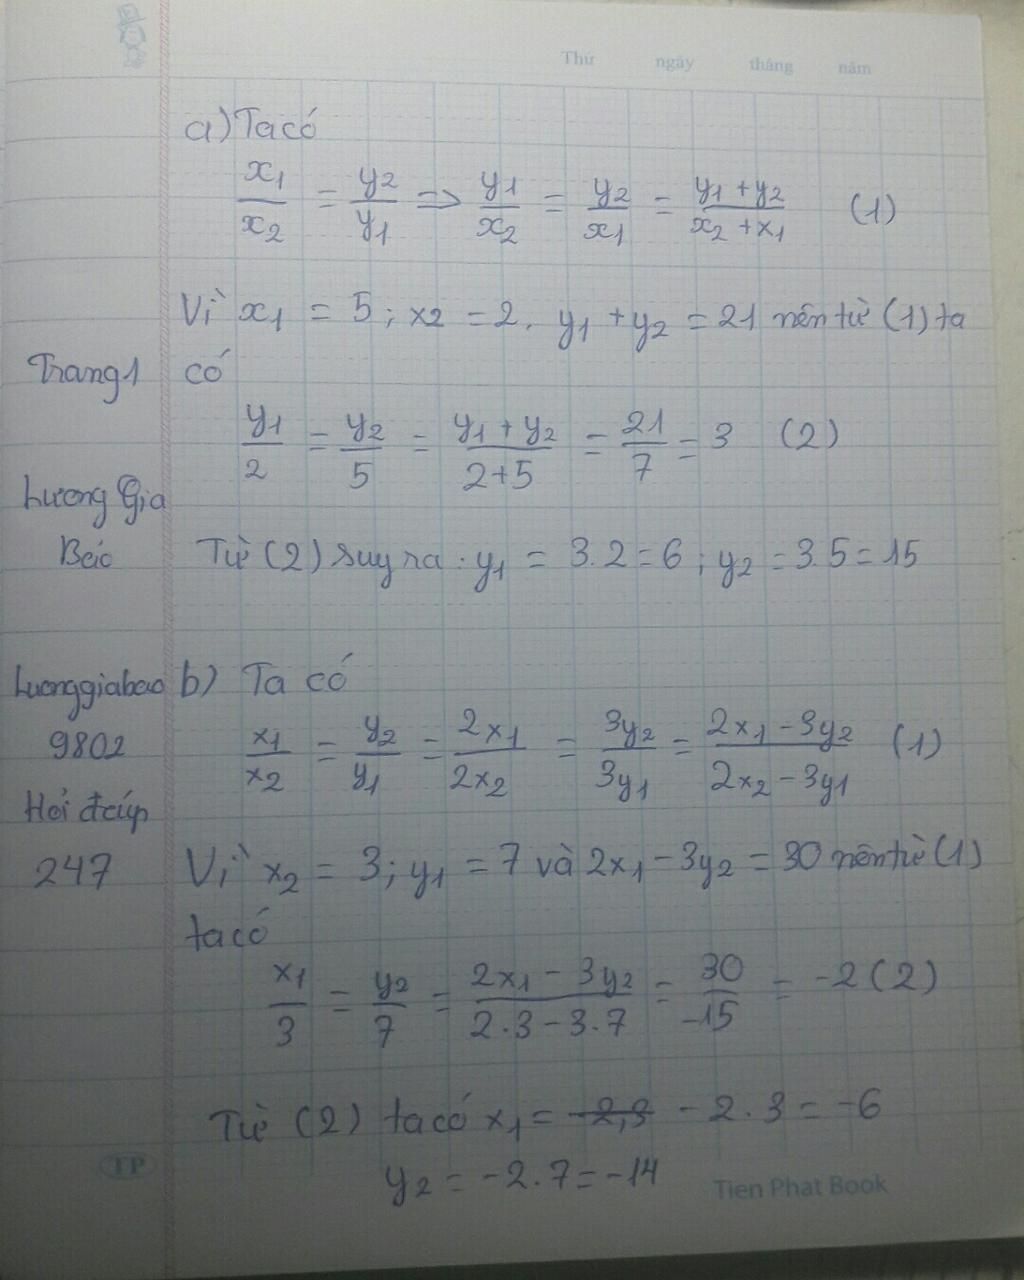 Thứ ngày tháng năm
a) Ta có
x1/x2 = y2/y1 => y1/x2 = y2/x1 = (y1 + y2)/(x2 + x1) (1)
Vì x1 = 5 ; x2 = 2. y1 + y2 = 21 nên từ (1) ta
Trang 1
có
y1/2 = y2/5 = (y1 + y2)/(2+5) = 21/7 = 3 (2)
Lương Gia
Bảo
Từ (2) suy ra : y1 = 3.2 = 6 ; y2 = 3.5 = 15
Luonggiabao
9802
Hỏi đáp
247
b) Ta có
x1/x2 = y2/y1 = 2x1/2x2 = 3y2/3y1 = (2x1 - 3y2)/(2x2 - 3y1) (1)
Vì x2 = 3 ; y1 = 7 và 2x1 - 3y2 = 30 nên từ (1)
ta có
x1/3 = y2/7 = (2x1 - 3y2)/(2.3 - 3.7) = 30/-15 = -2 (2)
Từ (2) ta có x1 = -2.3 = -6
y2 = -2.7 = -14
TP
Tien Phat Book